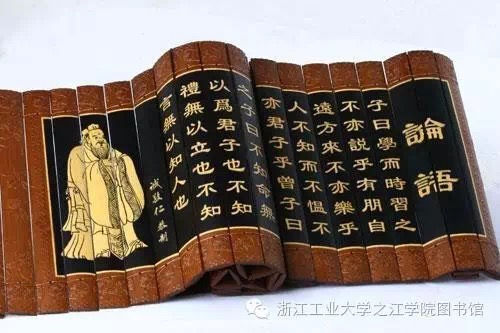 論語
子曰學而時習之
不亦說乎有朋自
遠方來不亦樂乎
人不知而不愠不
亦君子乎曾子曰
之子曰不知命無
以爲君子也不知
禮無以立也不知
言無以知人也
誠敬仁
浙江工业大学之江学院图书馆